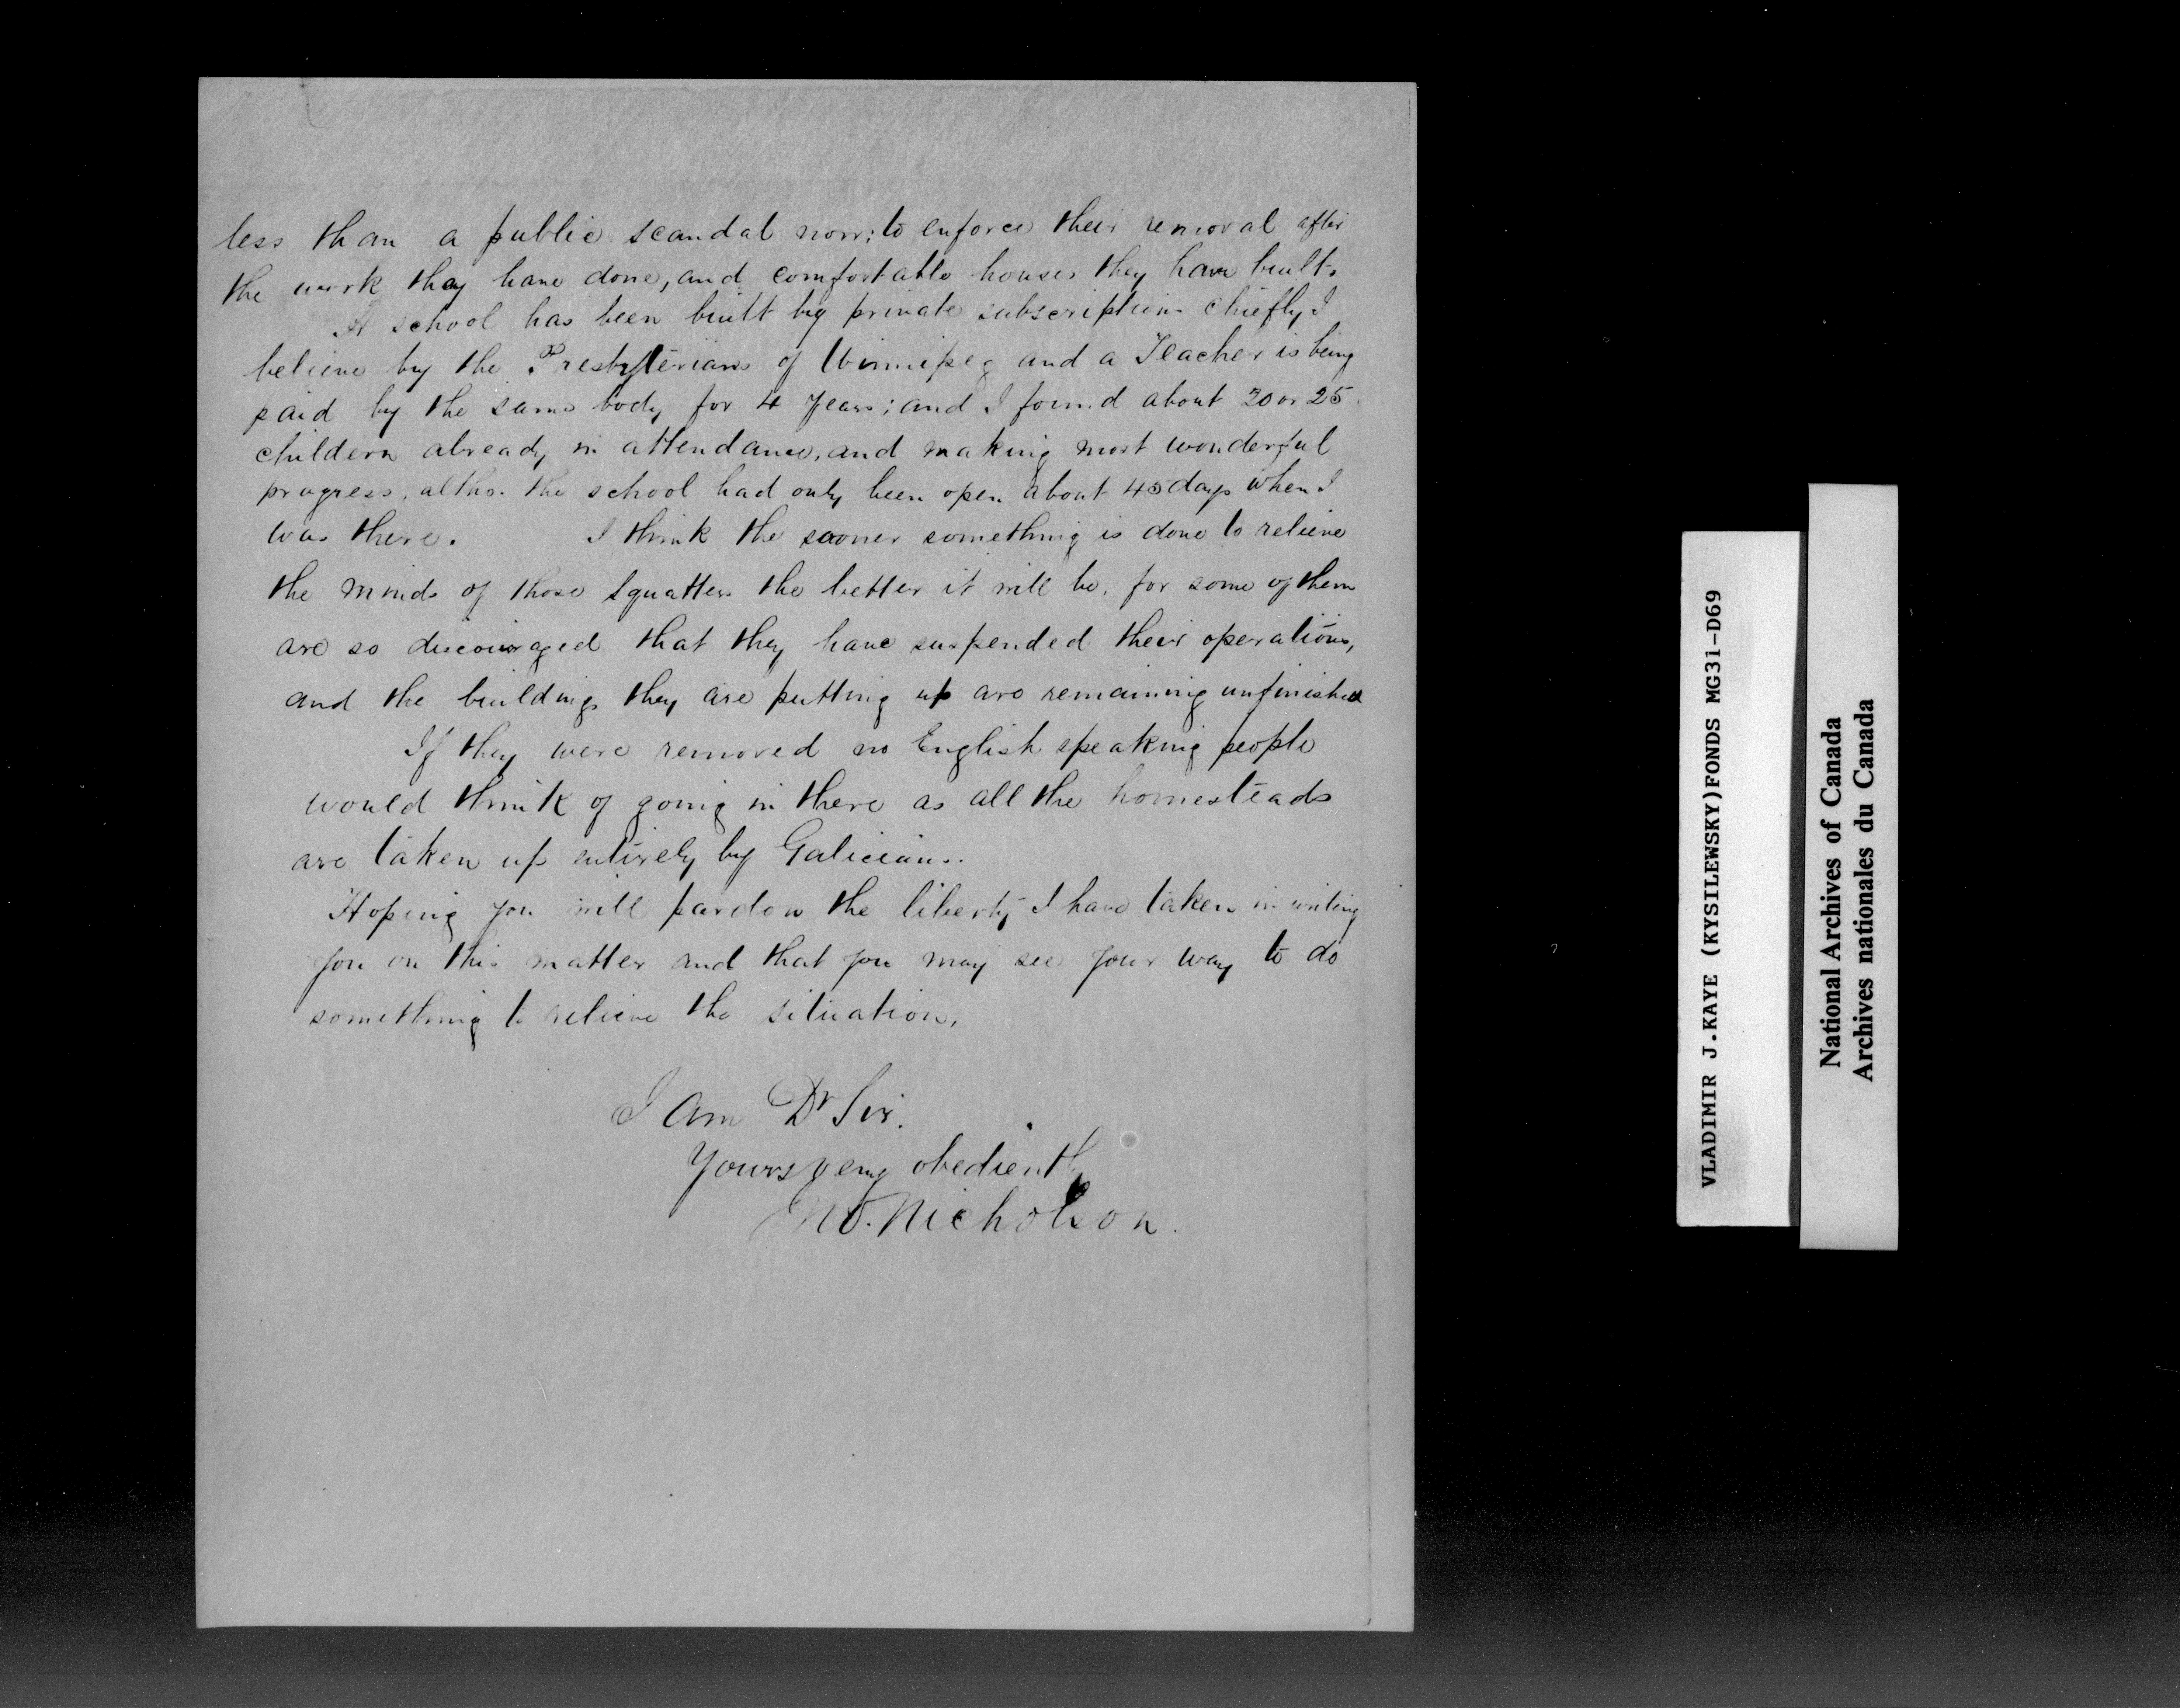 less than a public scandal now; to enforce their removal after
the work they have done, and comfortable houses they have built.
A school has been built by private subscription chiefly I
believe by the Presbyterians of Winnipeg and a Teacher is being
paid by the same body for 4 years; and I found about 20 or 25
childern already in attendance, and making most wonderful
progress, altho. the school had only been open about 45 days when I
was there. I think the sooner something is done to relieve
the minds of those squatters the better it will be, for some of them
are so discouraged that they have suspended their operations,
and the buildings they are putting up are remaining unfinished
If they were removed no English speaking people
would think of going in there as all the homesteads
are taken up entirely by Galicians.
Hoping you will pardon the liberty I have taken in writing
you on this matter and that you may see your way to do
something to relieve the situation,
I am Dr Sir.
Yours very obediently
Jno. Nicholson.
VLADIMIR J.KAYE (KYSILEWSKY)FONDS MG31-D69
National Archives of Canada
Archives nationales du Canada